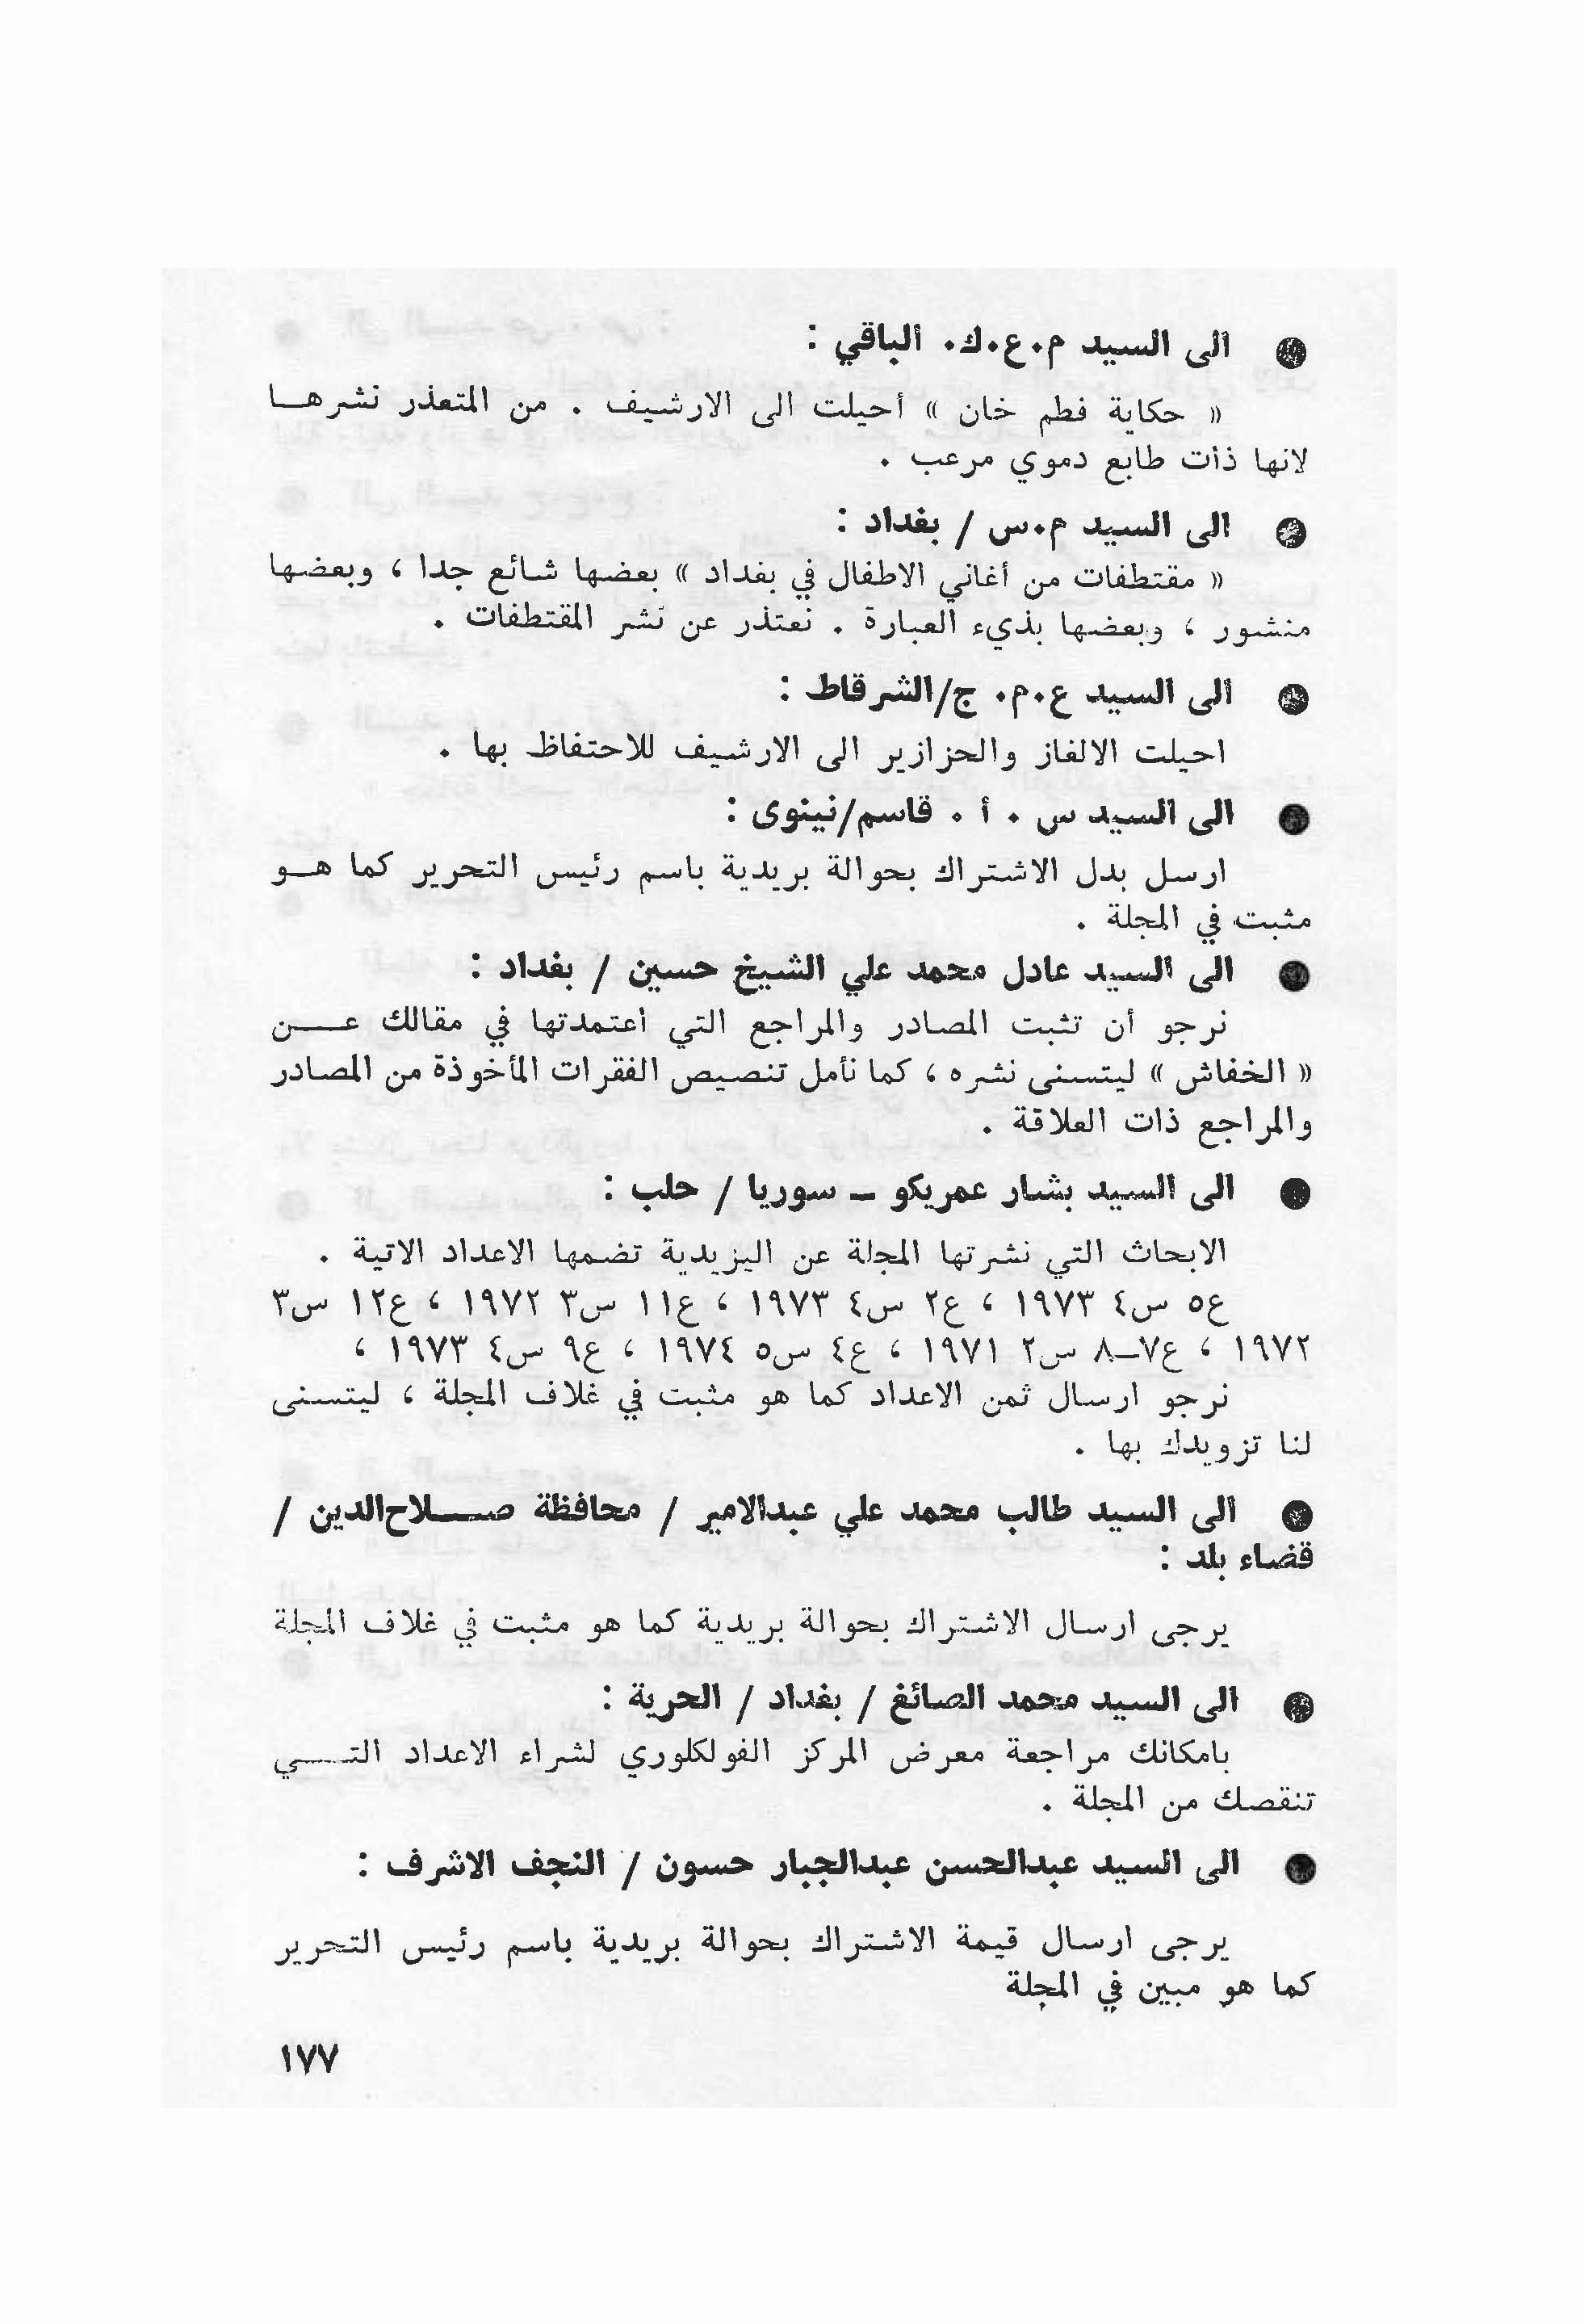 ● الى السيد م.ع.ك. الباقي :
« حكاية فطم خان » أحيلت الى الارشيف . من المتعذر نشرها
لانها ذات طابع دموي مرعب .
● الى السيد م.س / بغداد :
« مقتطفات من أغاني الاطفال في بغداد » بعضها شائع جدا ، وبعضها
منشور ، وبعضها بذيء العبارة . نعتذر عن نشر المقتطفات .
● الى السيد ع.م. ج/الشرقاط :
احيلت الالغاز والحزازير الى الارشيف للاحتفاظ بها .
● الى السيد س . أ . قاسم/نينوى :
ارسل بدل الاشتراك بحوالة بريدية باسم رئيس التحرير كما هو
مثبت في المجلة .
● الى السيد عادل محمد علي الشيخ حسين / بغداد :
نرجو أن تثبت المصادر والمراجع التي اعتمدتها في مقالك عن
« الخفاش » ليتسنى نشره ، كما نأمل تنصيص الفقرات المأخوذة من المصادر
والمراجع ذات العلاقة .
● الى السيد بشار عمريكو ــ سوريا / حلب :
الابحاث التي نشرتها المجلة عن اليزيدية تضمها الاعداد الاتية .
ع٥ س٤ ١٩٧٣ ، ع٢ س٤ ١٩٧٣ ، ع١١ س٣ ١٩٧٢ ، ع١٢ س٣
١٩٧٢ ، ع٧ــ٨ س٢ ١٩٧١ ، ع٤ س٥ ١٩٧٤ ، ع٩ س٤ ١٩٧٣ ،
نرجو ارسال ثمن الاعداد كما هو مثبت في غلاف المجلة ، ليتسنى
لنا تزويدك بها .
● الى السيد طالب محمد علي عبدالامير / محافظة صلاح‌الدين /
قضاء بلد :
يرجى ارسال الاشتراك بحوالة بريدية كما هو مثبت في غلاف المجلة
● الى السيد محمد الصائغ / بغداد / الحرية :
بامكانك مراجعة معرض المركز الفولكلوري لشراء الاعداد التي
تنقصك من المجلة .
● الى السيد عبدالحسن عبدالجبار حسون / النجف الاشرف :
يرجى ارسال قيمة الاشتراك بحوالة بريدية باسم رئيس التحرير
كما هو مبين في المجلة
١٧٧